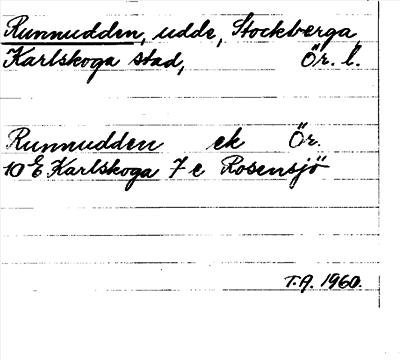 Runnudden, udde, Stockberga,
Karlskoga stad, Ör. l.
Runnudden ek Ör.
10 E Karlskoga 7 c Rosensjö
T.A. 1960.